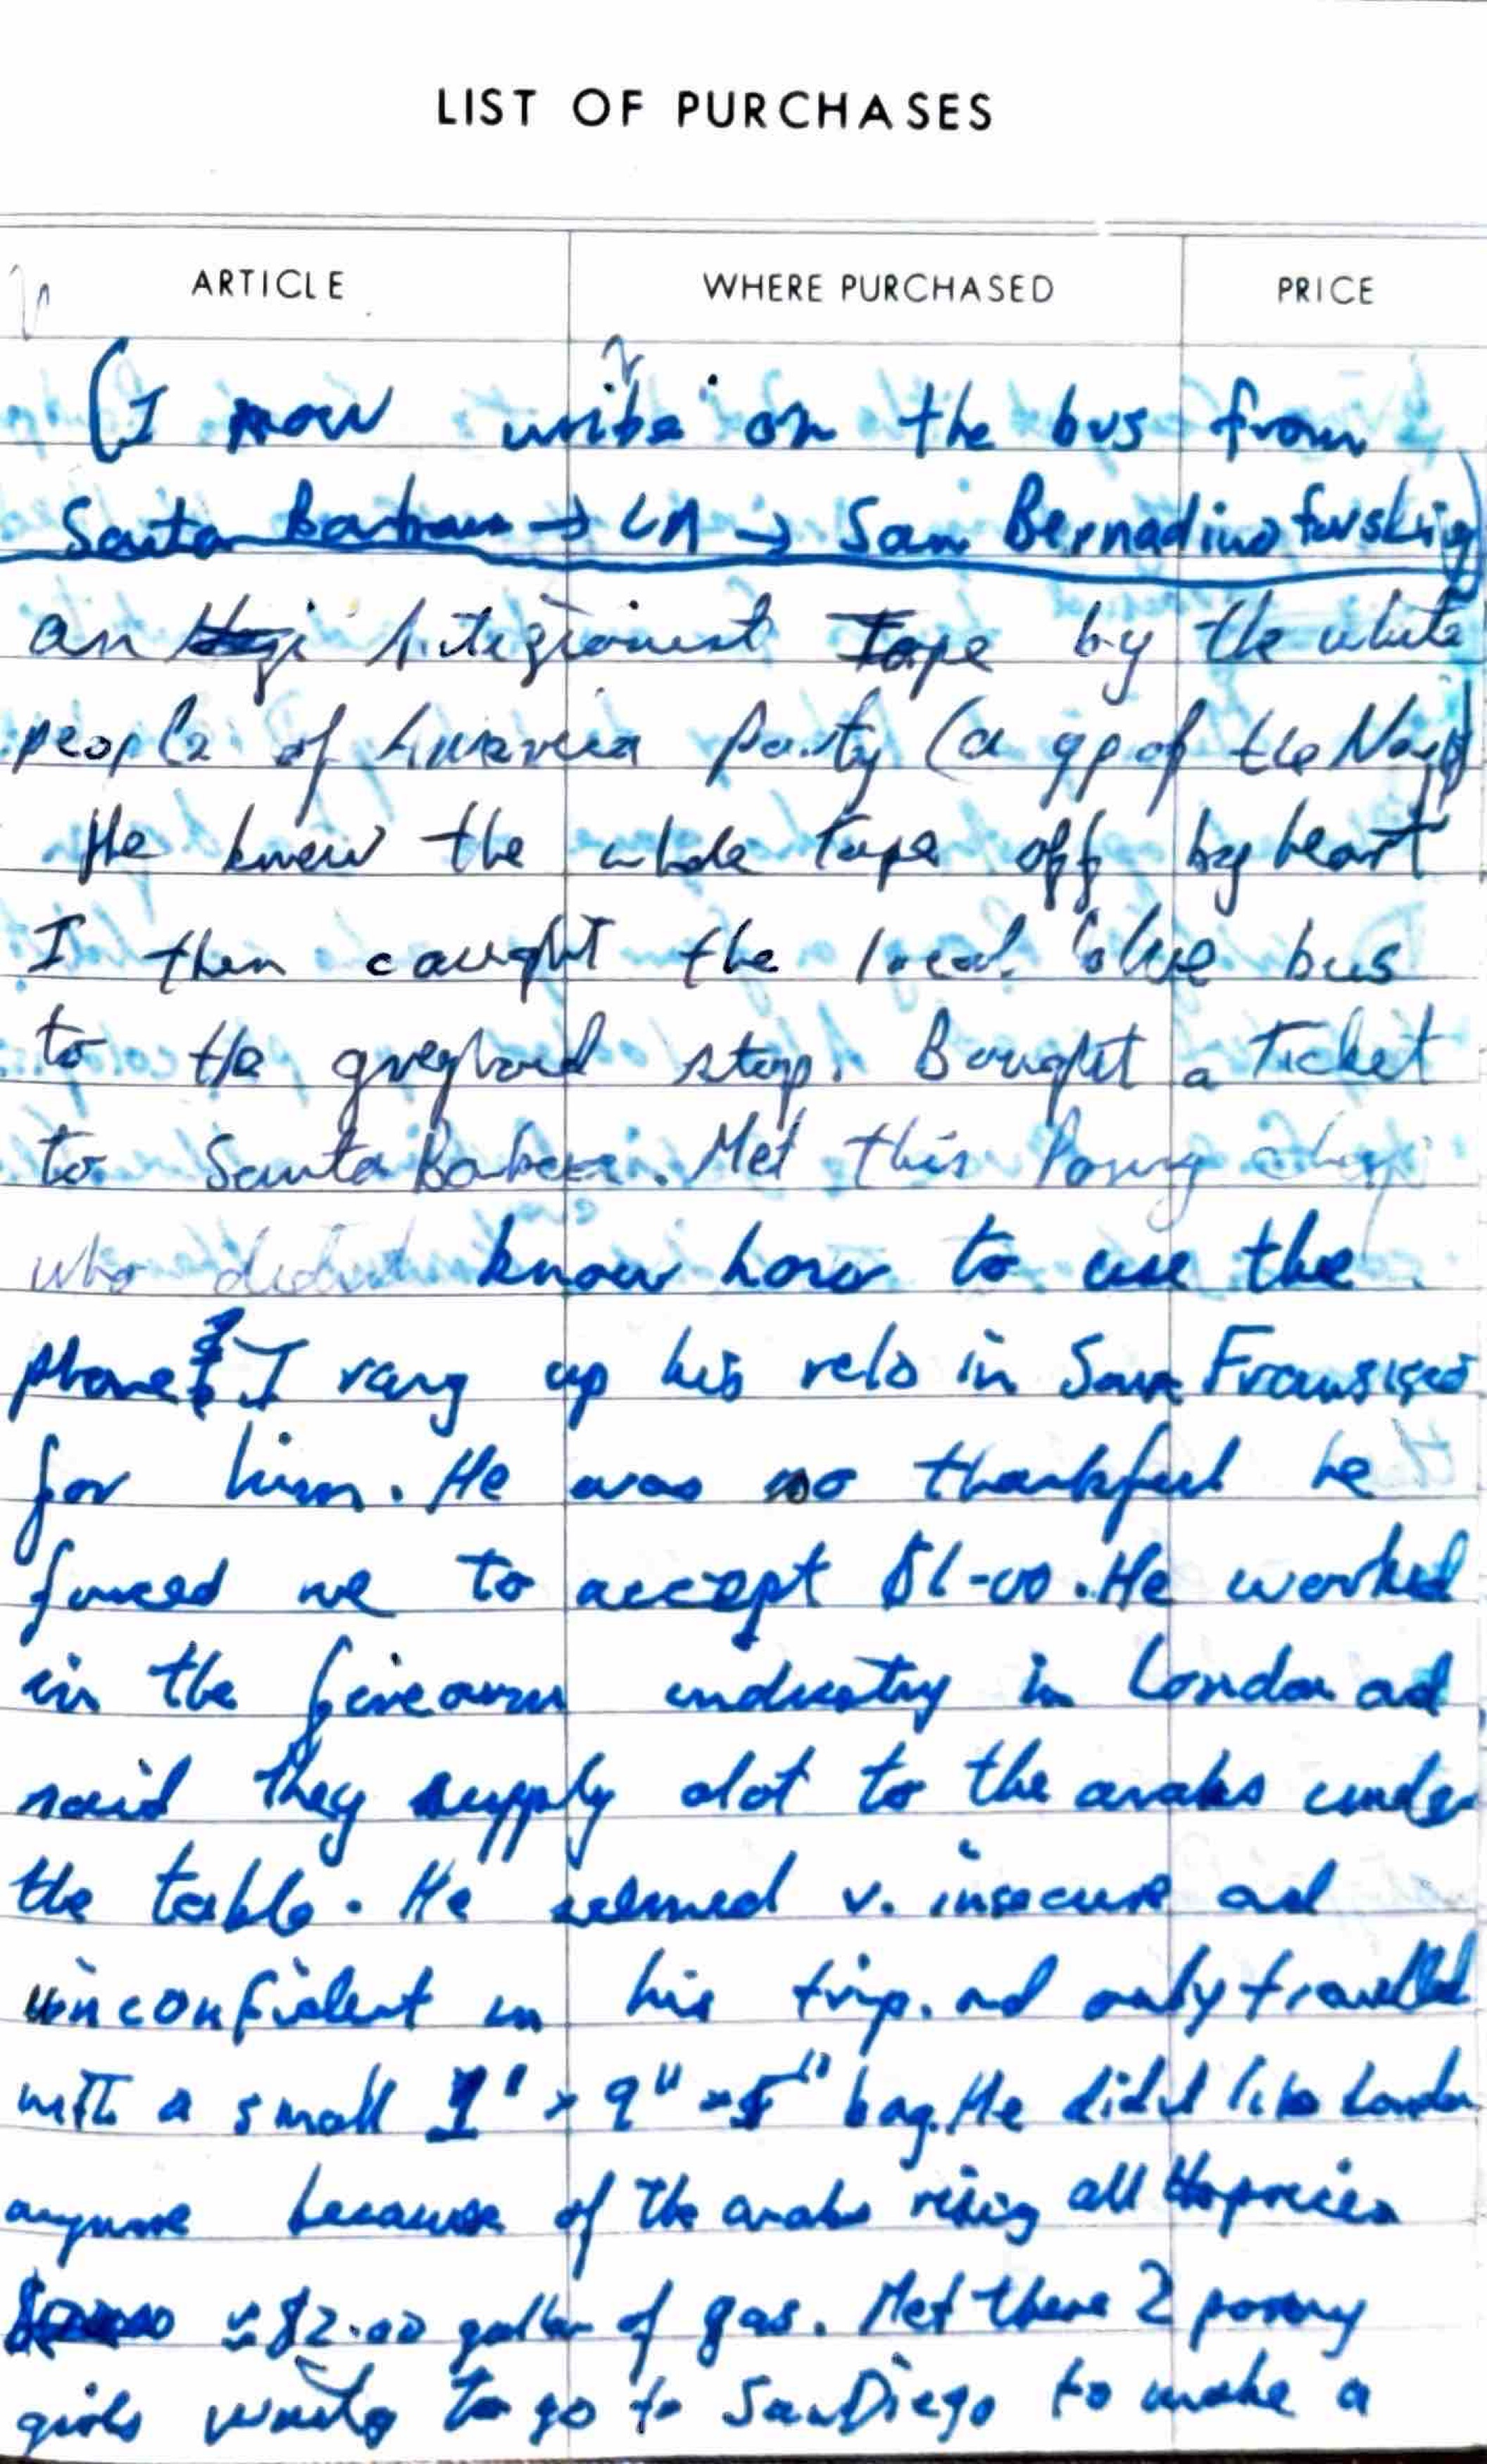 LIST OF PURCHASES
ARTICLE WHERE PURCHASED PRICE
(I now write on the bus from
Santa Barbara → LA → San Bernadino for skiing)
an Antizionist Tape by the white
people of America party (a gp of the Nazis)
He knew the whole tape off by heart
I then caught the local blue bus
to the greyhound stop. Bought a Ticket
to Santa Barbara. Met this Pomy chap
who didnt know how to use the
phone & I rang up his relo in San Fransisco
for him. He was so thankful he
forced me to accept $1-00. He worked
in the firearm industry in London ad
said they supply alot to the arabs under
the table. He seemed v. insecure ad
unconfident in his trip. ad only travelled
with a small 1' × 9" × 5" bag. He didnt like London
anymore because of the arabs rising all the prices
≈ $2.00 gallon of gas. Met these 2 pommy
girls wanting to go to San Diego to make a